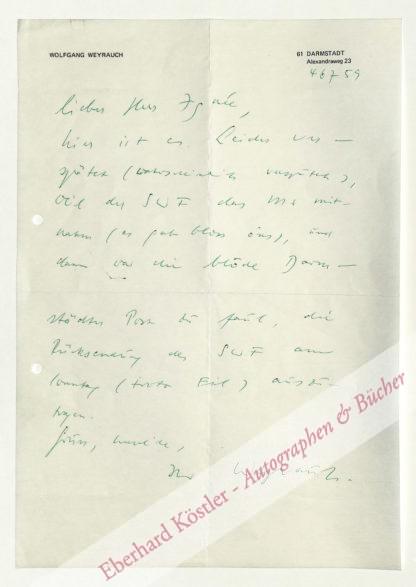 WOLFGANG WEYRAUCH
61 DARMSTADT
Alexandraweg 23
46759
lieber Herr
hier ist es. Leider ver-
spätet (wahrscheinlich verspätet),
weil der SWF das Ms mit-
nahm (es gab bloss eins), und
dann war die blöde Darm-
städter Post zu faul, die
Rücksendung des SWF am
Sonntag (trotz Eil) auszu-
tragen.
Gruss,
Ihr Weyrauch.
Eberhard Köstler - Autographen & Bücher